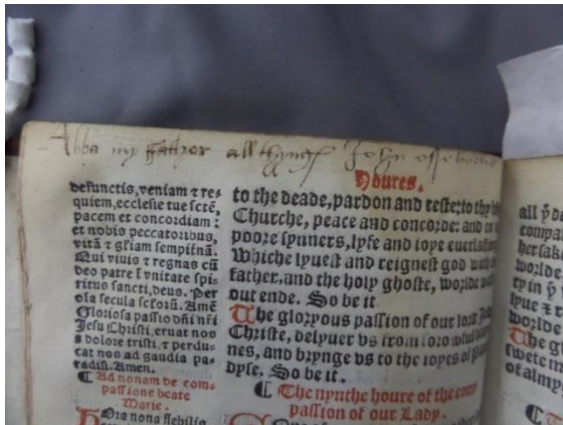 Abba my father all thynges John osseborne
Houres.
defunctis, veniam ⁊ re⸗
quiem, ecclesie tue sctē,
pacem et concordiam:
et nobis peccatoribus,
vitā ⁊ gl̄iam sempitnā.
Qui viuis ⁊ regnas cū
deo patre ī vnitate spi⸗
ritus sancti, deus. Per
oīa secula sctorū. Amē
Gloriosa passio dn̄i nr̄i
Jesu Christi, eruat nos
a dolore tristi, ⁊ perdu⸗
cat nos ad gaudia pa⸗
radisi. Amen.
¶ Ad nonam de com⸗
passione beate
Marie.
Hora nona flebilis
to the deade, pardon and reste: to thy
Churche, peace and concorde: and to
poore synners, lyfe and ioye euerlast
Whiche lyuest and reignest god with
father, and the holy ghoste, worlde with
out ende. So be it
The gloryous passion of our lord
Christe, delyuer vs from
nes, and brynge vs to the ioyes of
dyse. So be it.
¶ The nynthe houre of the com
passion of our Lady.
all ẏ de
compa
her sake
worlde.
try in ẏ
lyue ⁊ r
worlde
The g
swete m
of almy